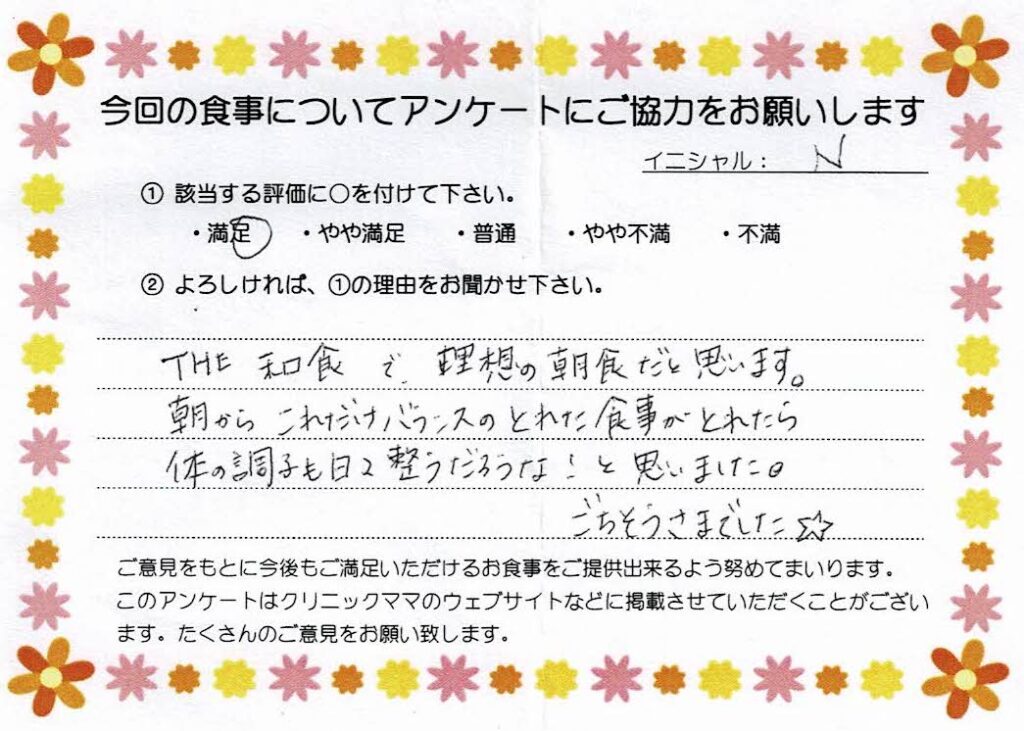 今回の食事についてアンケートにご協力をお願いします
イニシャル： N
① 該当する評価に○を付けて下さい。
・満足 ・やや満足 ・普通 ・やや不満 ・不満
② よろしければ、①の理由をお聞かせ下さい。
THE 和食 で、理想の朝食だと思います。
朝から これだけバランスのとれた食事がとれたら
体の調子も日々整うだろうな！と思いました。
ごちそうさまでした☆
ご意見をもとに今後もご満足いただけるお食事をご提供出来るよう努めてまいります。
このアンケートはクリニックママのウェブサイトなどに掲載させていただくことがござい
ます。たくさんのご意見をお願い致します。